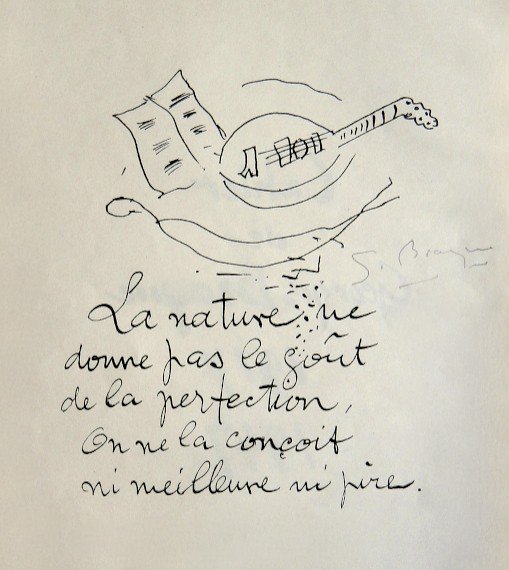 G. Braque
La nature ne
donne pas le goût
de la perfection,
On ne la conçoit
ni meilleure ni pire.